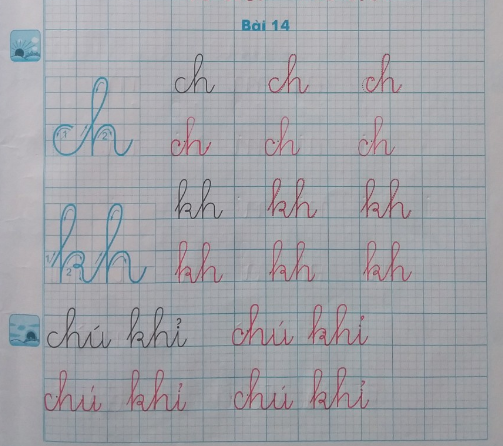 Bài 14
ch ch ch ch
ch ch ch
kh kh kh kh
kh kh kh
chú khỉ chú khỉ
chú khỉ chú khỉ